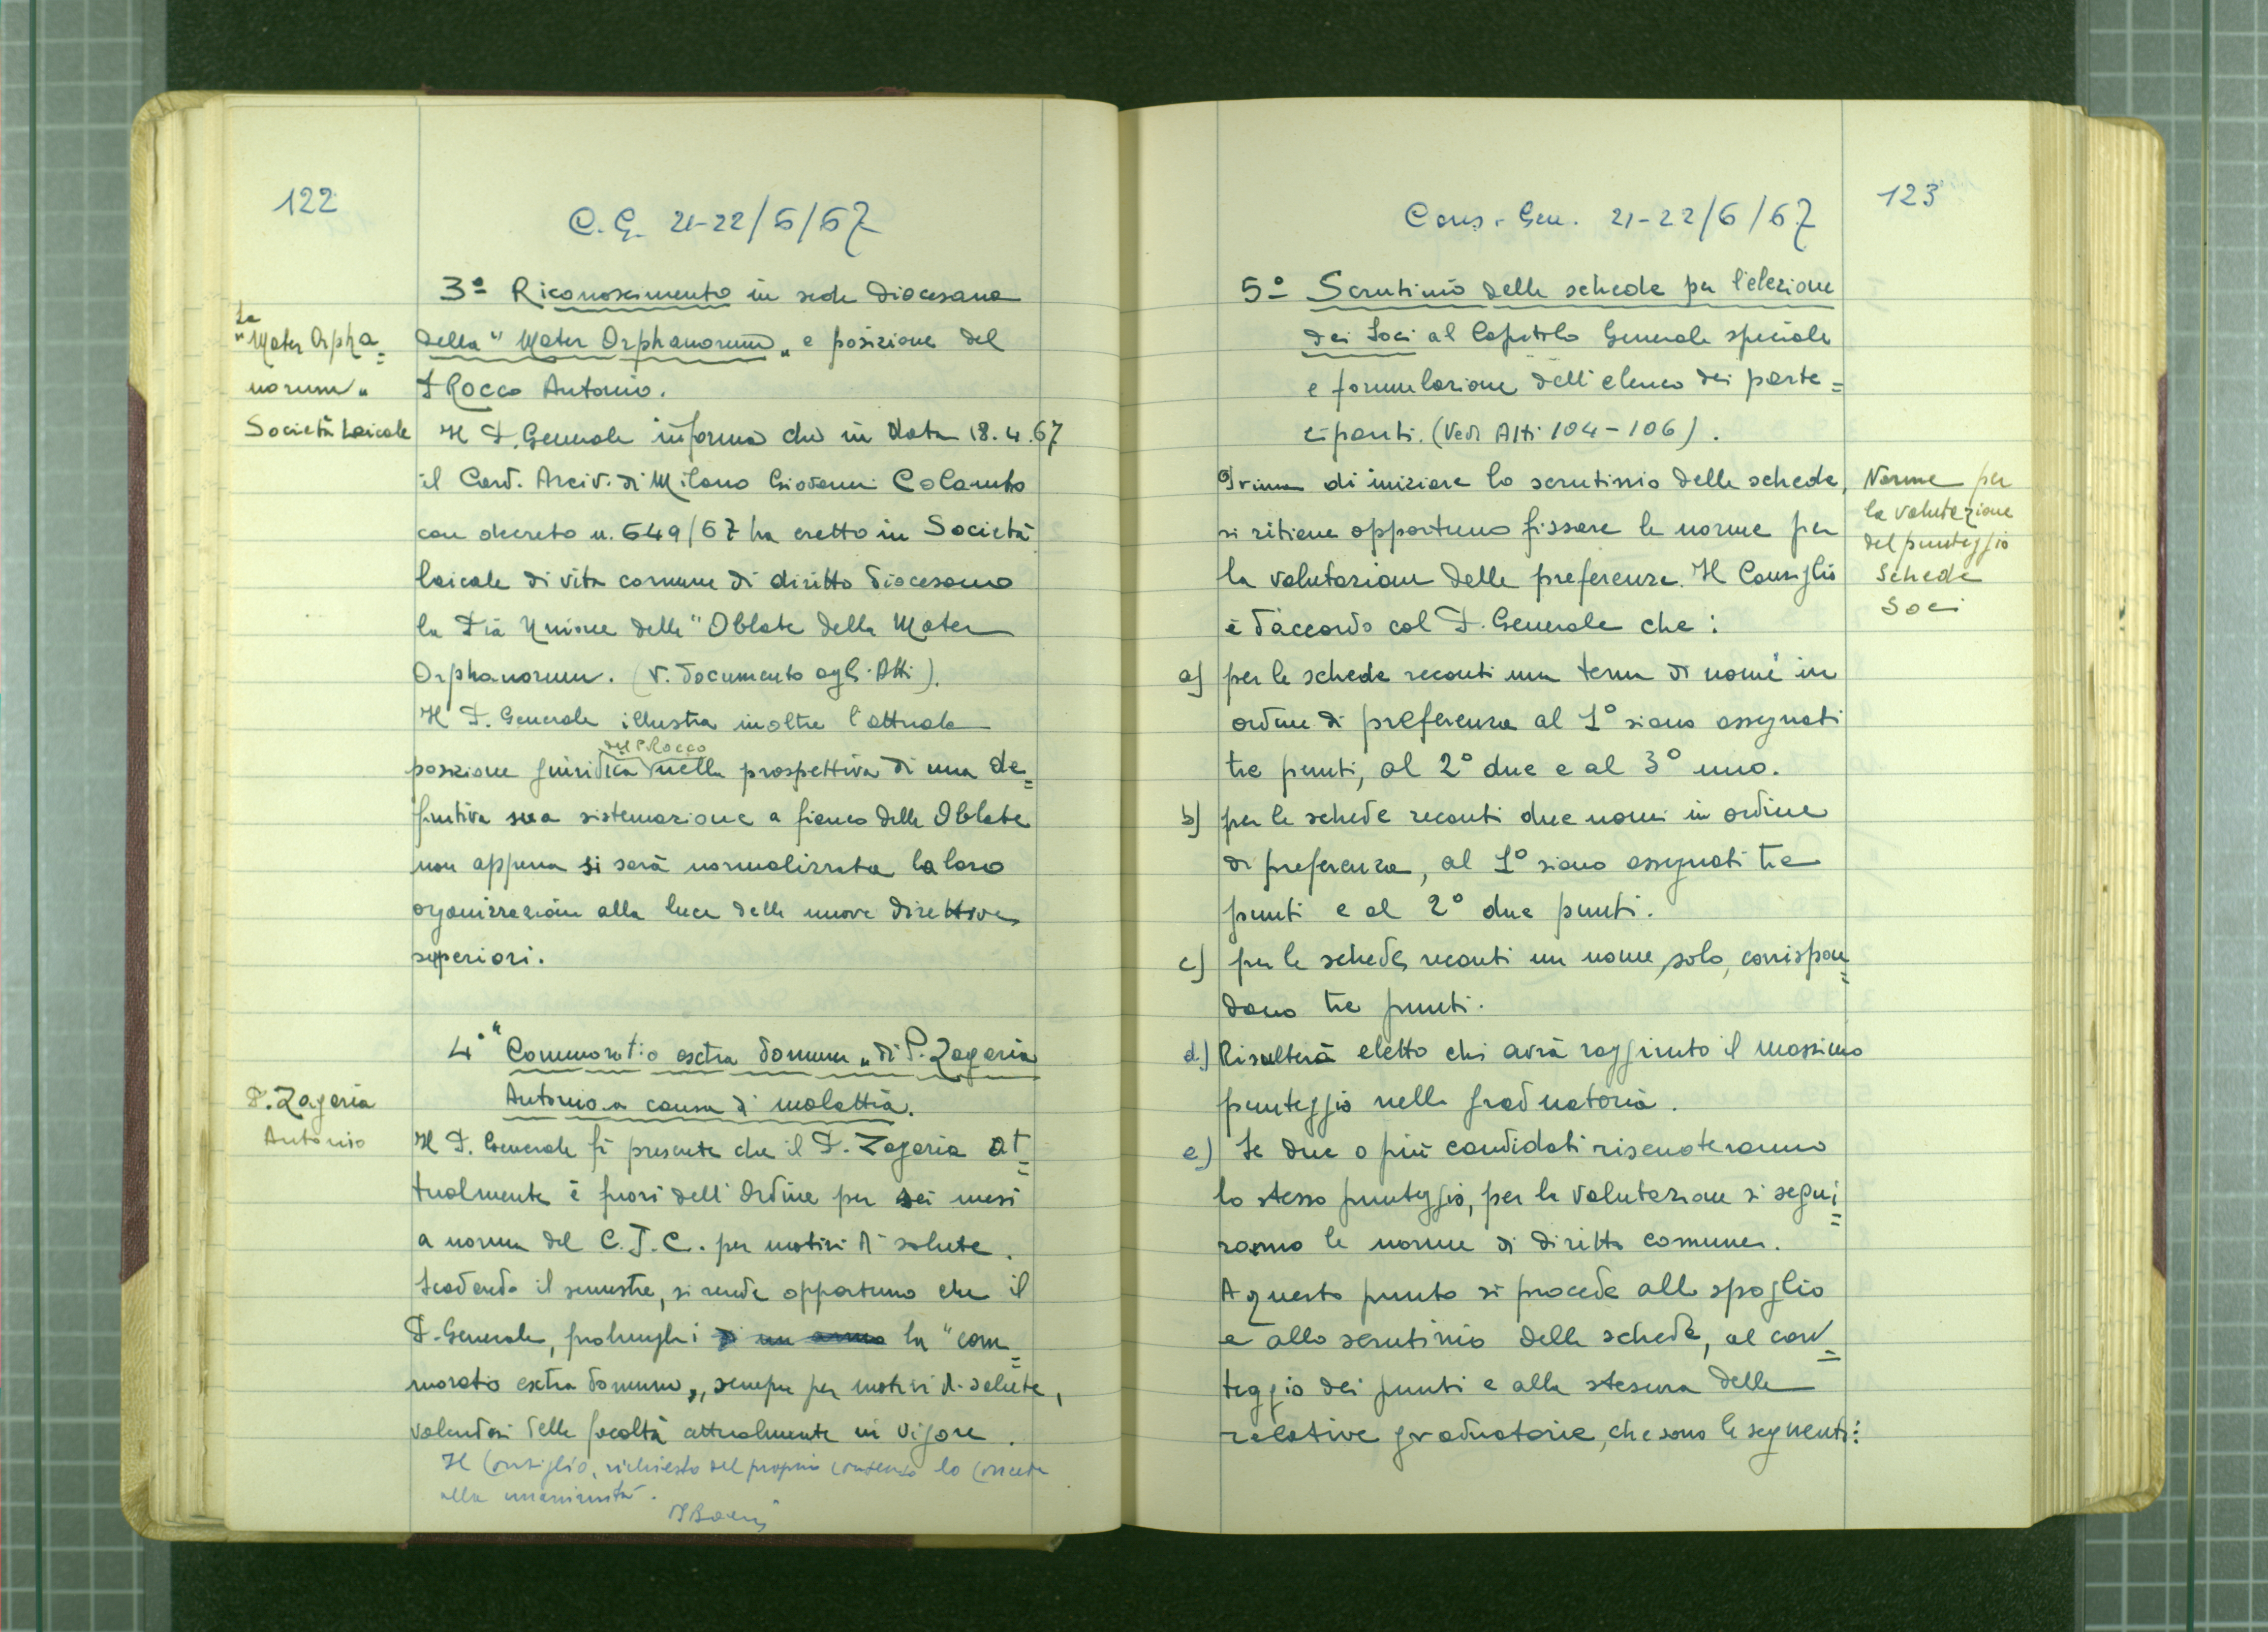 122
C.G. 21-22/6/67
3º Riconoscimento in sede Diocesana
La
"Mater Orpha=
norum"
Società Laicale
della "Mater Orphanorum" e posizione del
P. Rocco Antonio.
Il P. Generale informa che in data 18.4.67
il Card. Arciv. di Milano Giovanni Colombo
con decreto n. 649/67 ha eretto in Società
laicale di vita comune di diritto diocesano
la Pia Unione delle "Oblate della Mater
Orphanorum. (V. documento agli Atti).
Il P. Generale illustra inoltre l'attuale
del P. Rocco
posizione giuridica nella prospettiva di una de=
finitiva sua sistemazione a fianco delle Oblate
non appena si sarà normalizzata la loro
organizzazione alla luce delle nuove direttive
superiori.
4º "Commoratio extra domum" di P. Zagaria
Antonio a causa di malattia.
P. Zagaria
Antonio
Il P. Generale fa presente che il P. Zagaria at=
tualmente è fuori dell'Ordine per sei mesi
a norma del C.J.C. per motivi di salute.
Scadendo il semestre, si rende opportuno che il
P. Generale, prolunghi di un anno la "com=
moratio extra domum", sempre per motivi di salute,
valendosi delle facoltà attualmente in vigore.
Il Consiglio, richiesto del proprio consenso lo concede
alla unanimità.
123
Cons. Gen. 21-22/6/67
5º Scrutinio delle schede per l'elezione
dei Soci al Capitolo Generale speciale
e formulazione dell'elenco dei parte=
cipanti. (Vedi Atti 104-106).
Prima di iniziare lo scrutinio delle schede,
si ritiene opportuno fissare le norme per
la valutazione delle preferenze. Il Consiglio
è d'accordo col P. Generale che:
Norme per
la valutazione
del punteggio
Schede
Soci
a) per le schede recanti una terna di nomi in
ordine di preferenza al 1º siano assegnati
tre punti, al 2º due e al 3º uno.
b) per le schede recanti due nomi in ordine
di preferenza, al 1º siano assegnati tre
punti e al 2º due punti.
c) per le schede, recanti un nome solo, corrispon=
dano tre punti.
d) Risulterà eletto chi avrà raggiunto il massimo
punteggio nella graduatoria.
e) Se due o più candidati riscuoteranno
lo stesso punteggio, per la valutazione si segui=
ranno le norme di diritto comune.
A questo punto si procede allo spoglio
e allo scrutinio delle schede, al con=
teggio dei punti e alla stesura delle
relative graduatorie, che sono le seguenti: